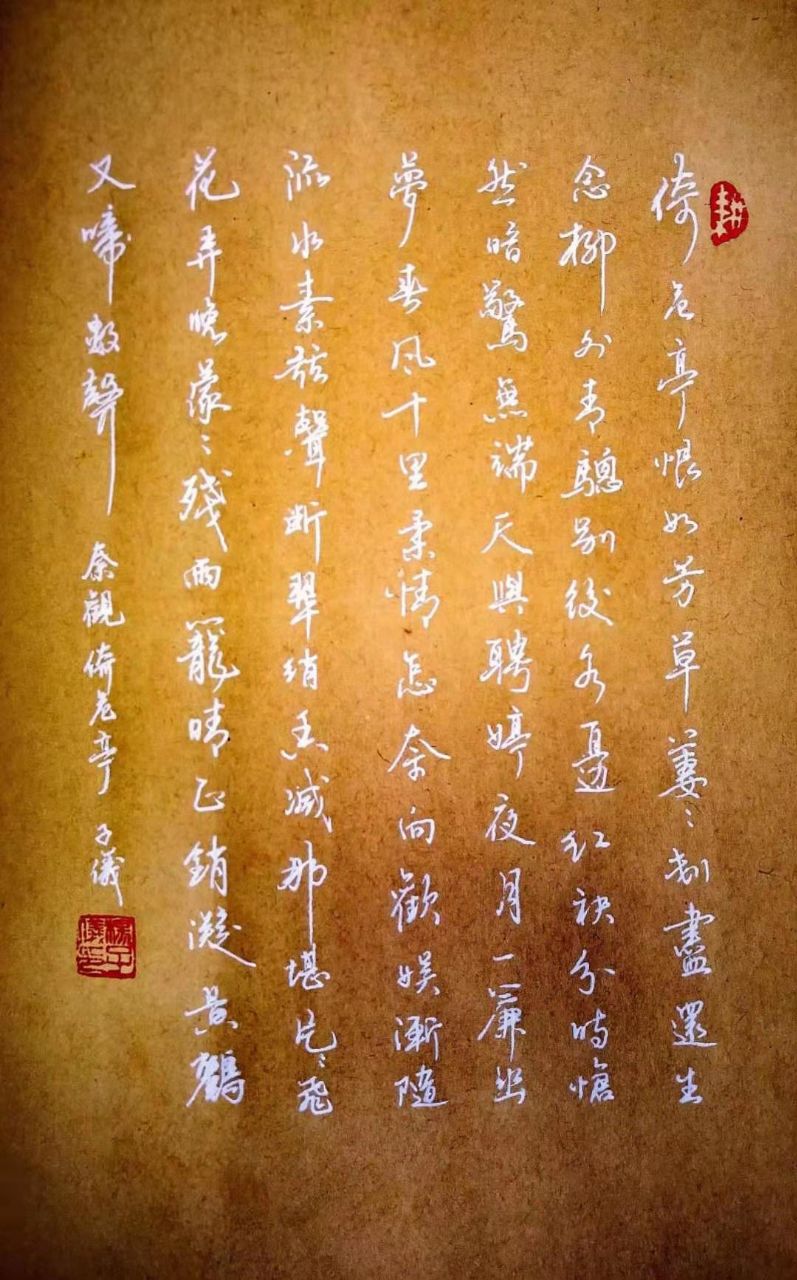 倚危亭恨如芳草萋〻剗盡還生
念柳外青驄别後水邊紅袂分時愴
然暗驚無端天與聘婷夜月一簾幽
夢春風十里柔情怎奈向歡娱漸隨
流水素弦聲斷翠綃香減那堪片〻飛
花弄晚濛〻殘雨籠晴正銷凝黄鶴
又啼數聲 秦觀倚危亭 子儀